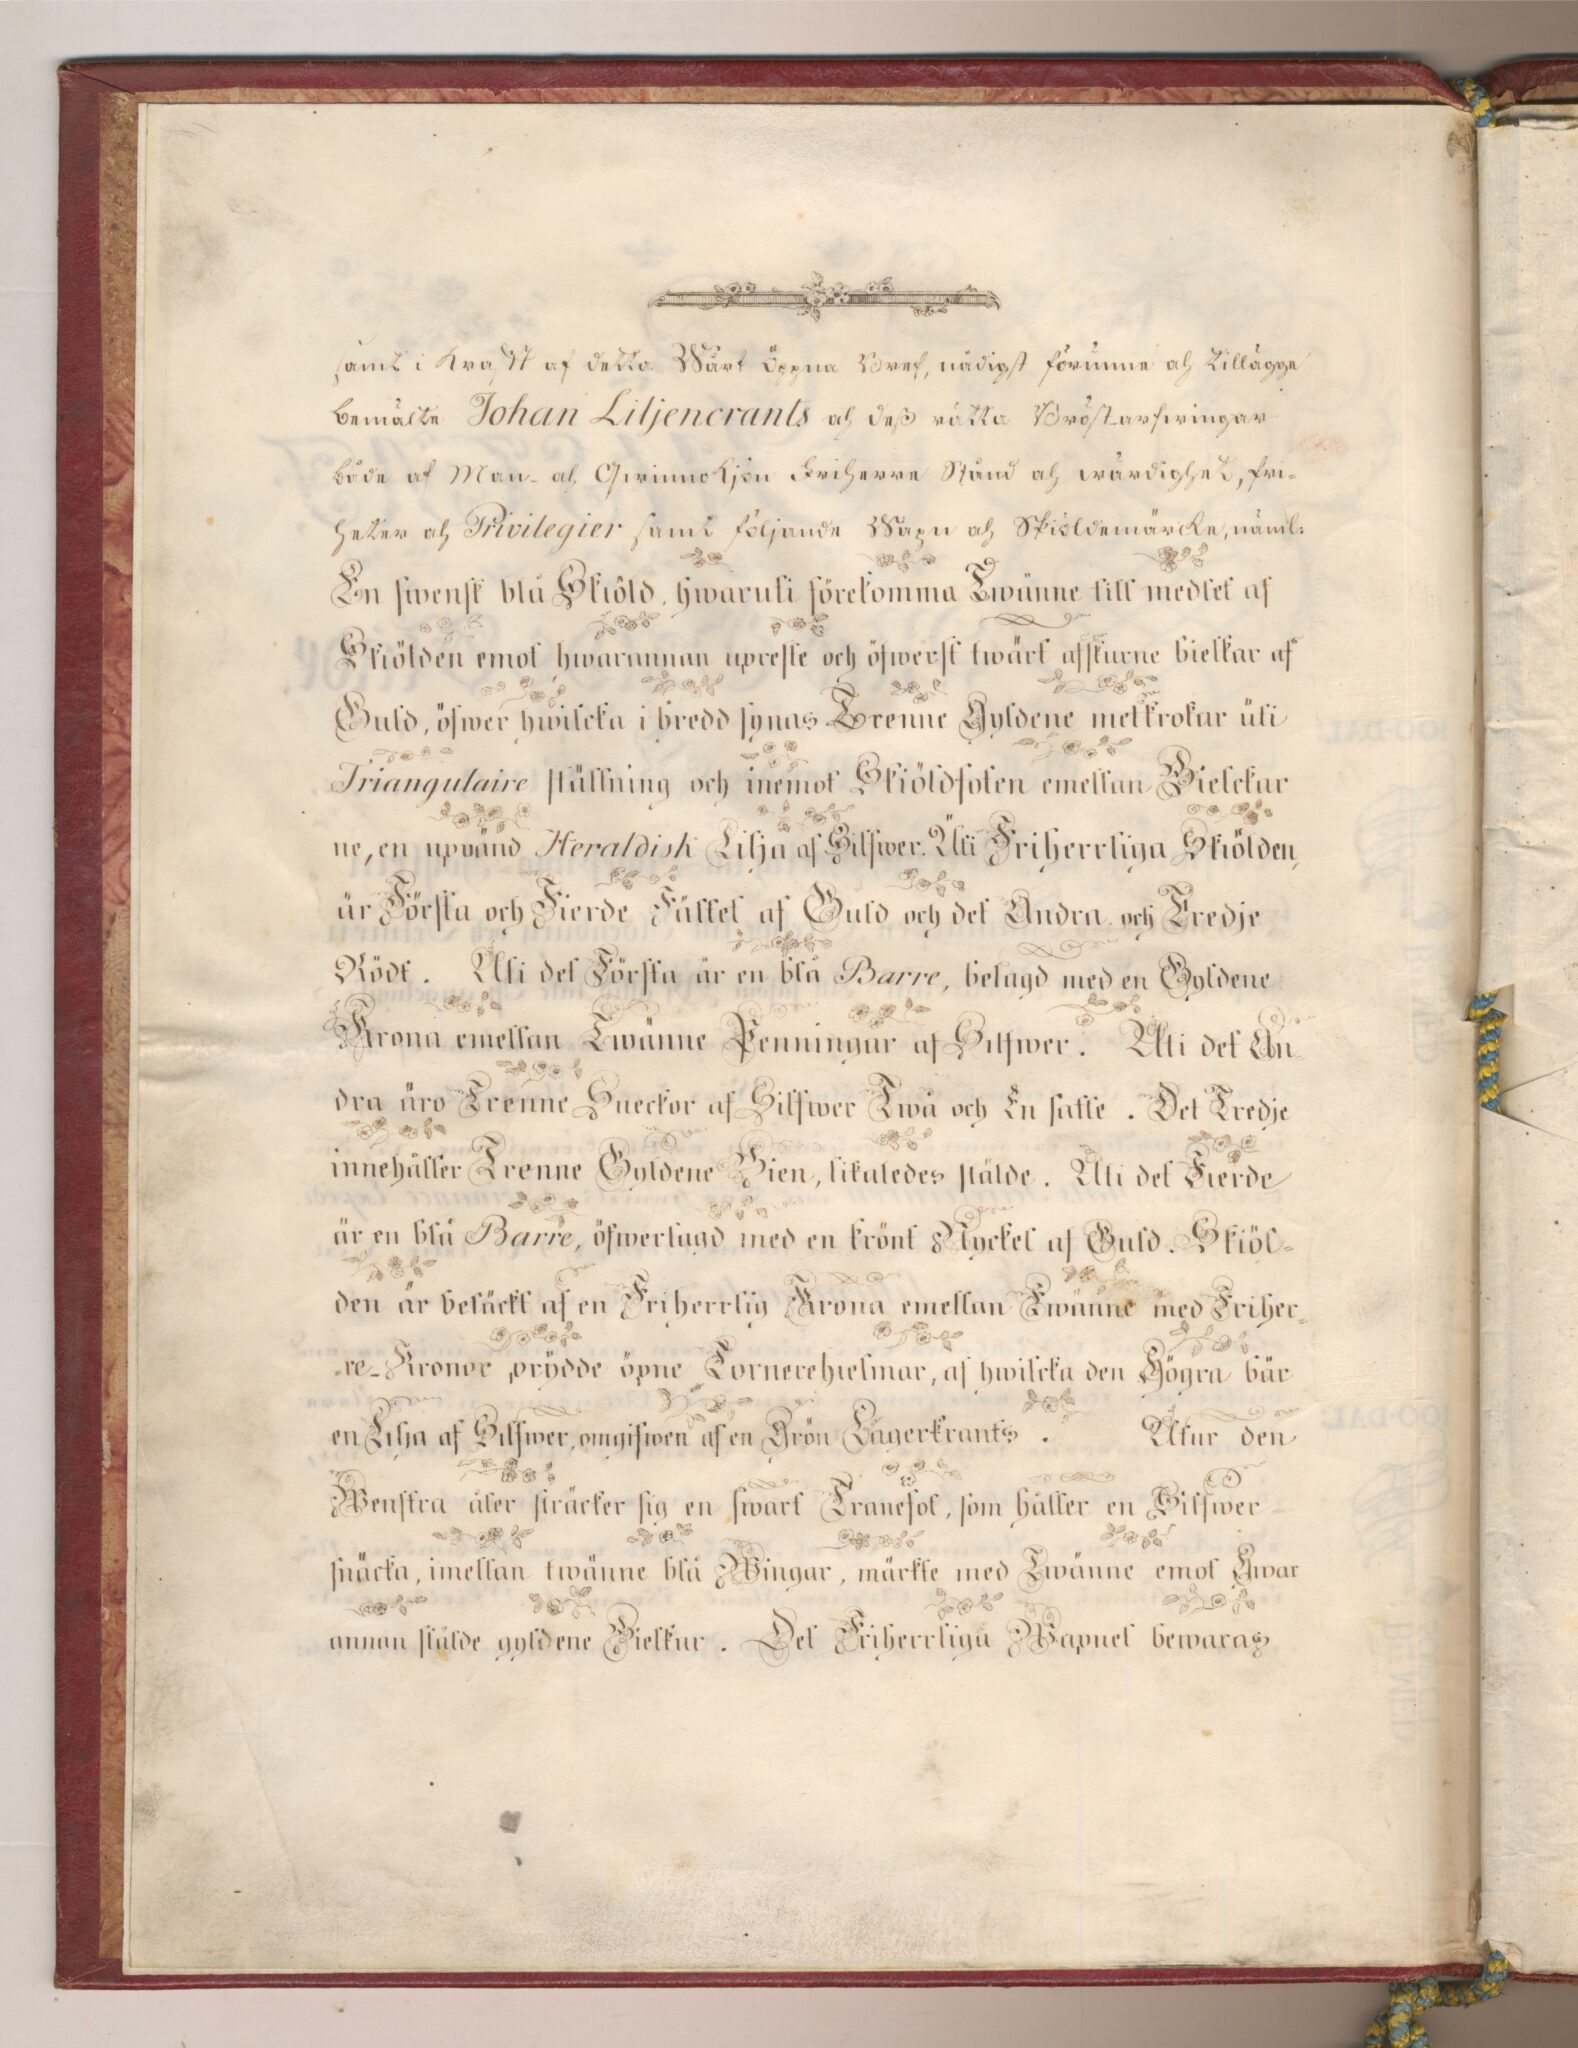 samt i Krafft af detta Wårt Öppna Bref, nådigst förunne och tillägge
bemälte Johan Liljencrants och deß rätta Bröst-arfwingar
både af Man- och Qwinnokjön Friherre Stånd och wärdighet, fri-
heter och Privilegier samt följande Wapn och Skiöldemärcke, näml:
En swensk blå Skiöld, hwaruti förekomma Twänne till medlet af
Skiölden emot hwarannan upreste och öfwerst twärt afskurne bielkar af
Guld, öfwer hwilcka i bredd synas Trenne Gyldene metkrokar uti
Triangulaire ställning och inemot Skiöldfoten emellan Bielckar
ne, en upvänd Heraldisk Lilja af Silfwer. Uti Friherrliga Skiölden,
är Första och Fierde Fältet af Guld och det Andra och Tredje
Rödt. Uti det Första är en blå Barre, belagd med en Gyldene
Krona emellan Twänne Penningar af Silfwer. Uti det An
dra äro Trenne Sneckor af Silfwer Twå och En satte. Det Tredje
innehåller Trenne Gyldene Bien, likaledes stälde. Uti det Fierde
är en blå Barre, öfwerlagd med en krönt Nyckel af Guld. Skiöl-
den är betäckt af en Friherrlig Krona emellan Twänne med Friher-
-re-Kronor prydde öpne Tornerehielmar, af hwilcka den Högra bär
en Lilja af Silfwer, omgifwen af en Grön Lagerkrants. Utur den
Wenstra åter sträcker sig en swart Tranefot, som håller en Silfwer
snäcka, imellan twänne blå Wingar, märkte med Twänne emot Hwar
annan stälde gyldene Bielkar. Det Friherrliga Wapnet bewaras